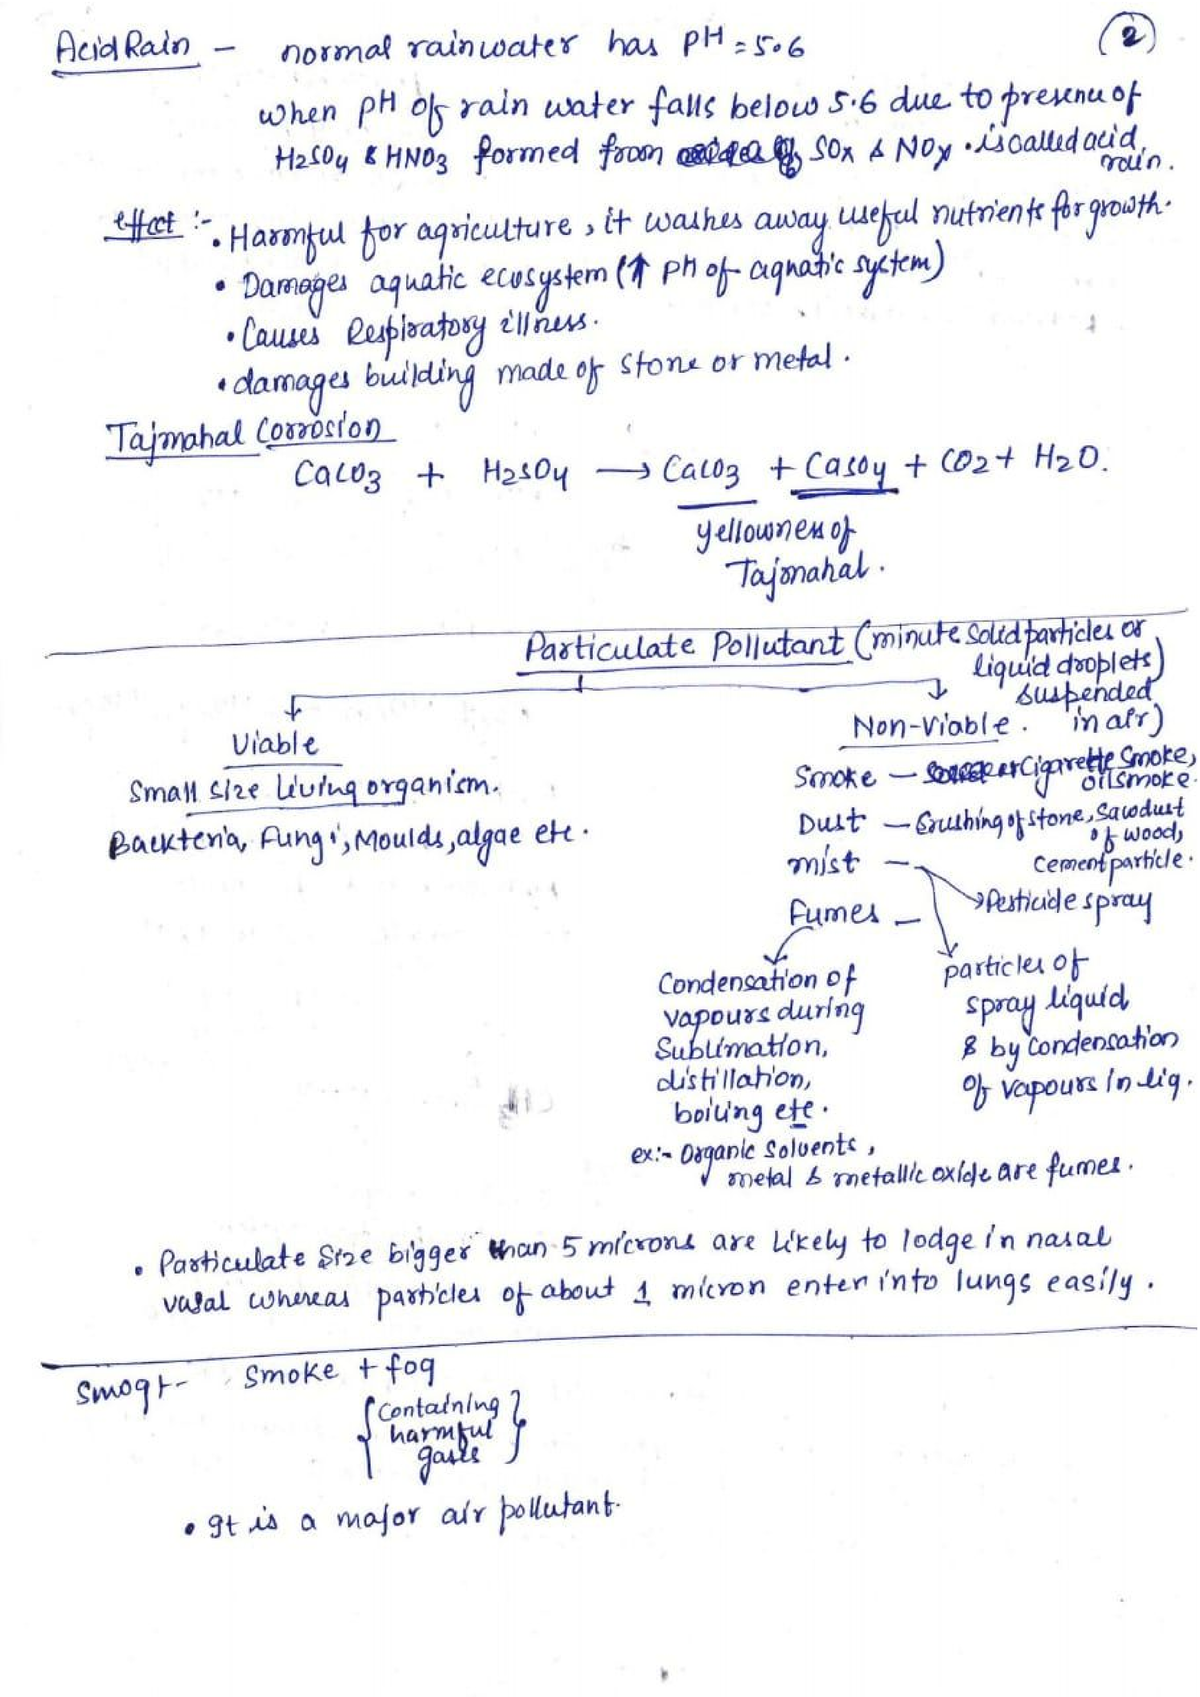 2
Acid Rain - normal rainwater has pH = 5.6
when pH of rain water falls below 5.6 due to presence of
H2SO4 & HNO3 formed from SOx & NOx . is called acid
rain.
effect :- • Harmful for agriculture, it washes away useful nutrients for growth.
• Damages aquatic ecosystem (↑ pH of aquatic system)
• Causes Respiratory illness.
• damages building made of stone or metal.
Tajmahal Corrosion
CaCO3 + H2SO4 → CaCO3 + CaSO4 + CO2 + H2O.
yellowness of
Tajmahal.
Particulate Pollutant (minute solid particles or
liquid droplets)
suspended
in air)
Viable
Non-Viable.
Small size living organism.
Backteria, Fungi, Moulds, algae etc.
Smoke - Cigarette Smoke,
oil smoke.
Dust - Crushing of stone, Sawdust
of wood,
Cement particle.
mist -
→ Pesticide spray
Fumes -
Condensation of
vapours during
Sublimation,
distillation,
boiling etc.
particles of
spray liquid
& by condensation
of vapours in liq.
ex:- Organic Solvents,
metal & metallic oxide are fumes.
• Particulate size bigger than 5 microns are likely to lodge in nasal
vasal whereas particles of about 1 micron enter into lungs easily.
Smog:- Smoke + fog
{ containing
harmful
gases }
• It is a major air pollutant.